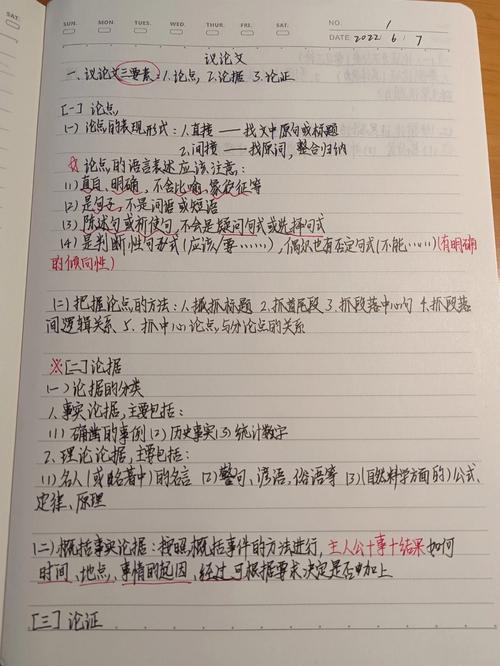 SUN. MON. TUE. WED. THU. FRI. SAT.
NO. 1
DATE 2022 6 7
议论文
一、议论文三要素:1.论点, 2.论据 3.论证
[一] 论点
(一) 论点的表现形式: 1.直接 —— 找文中原句或标题
2.间接 —— 找原词,整合归纳
论点的语言表述应该注意:
(1) 真白、明确,不会比喻、象征等
(2) 是句子,不是词语或短语
(3) 陈述句或祈使句,不会是疑问句式或选择句式
(4) 是判断性句式(应该/要……),偶尔也有否定句式(不能……)(有明确
的倾向性)
(二) 把握论点的方法:1.抓标题 2.抓首尾段 3.抓段落中心句 4.抓段落
间逻辑关系 5. 抓中心论点与分论点的关系
※[二]论据
(一)论据的分类
1.事实论据,主要包括:
(1) 确凿的事例 (2) 历史事实 (3) 统计数字
2.理论论据,主要包括:
(1) 名人(或名著中)的名言 (2) 警句、谚语、俗语等 (3)(自然科学方面的)公式、
定律、原理
(二)概括事实论据:按照概括事件的方法进行,主人公+事+结果 如何
时间、地点、事情的起因、经过可根据要求决定是否加上
[三] 论证